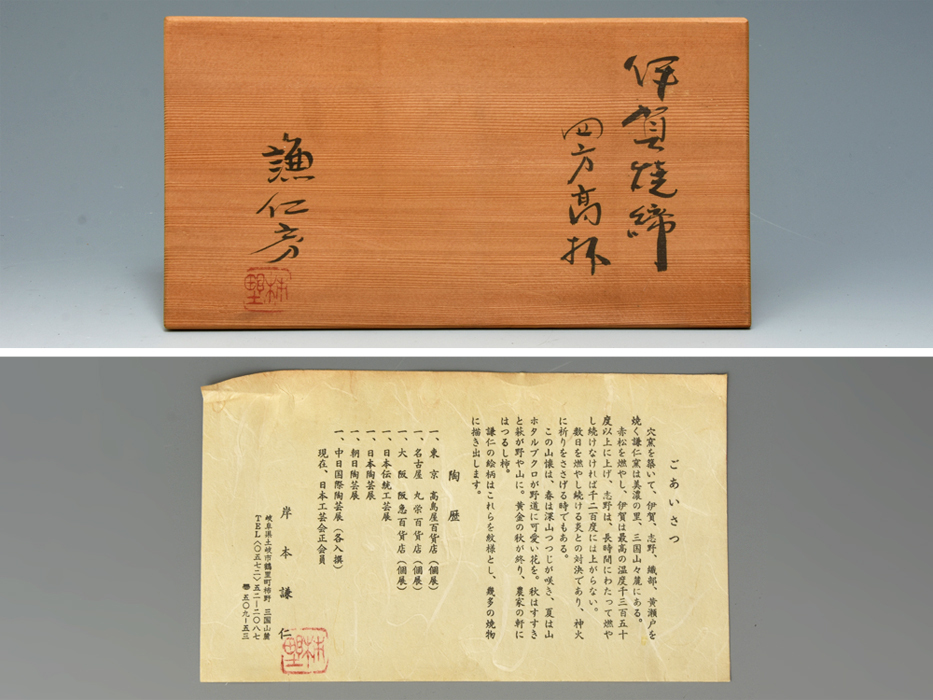 伊賀焼締
四方高坏
謙仁房
柿野
ごあいさつ
穴窯を築いて、伊賀、志野、織部、黄瀬戸を
焼く謙仁窯は美濃の里、三国山々麓にある。
赤松を燃やし、伊賀は最高の温度千三百五十
度以上に上げ、志野は、長時間にわたって燃や
し続けなければ千二百度には上がらない。
数日を燃やし続ける炎との対決であり、神火
に祈りをささげる時でもある。
この山懐は、春は深山つつじが咲き、夏は山
ホタルブクロが野道に可愛い花を。秋はすすき
と萩が野や山に。黄金の秋が終り、農家の軒に
はつるし柿。
謙仁の絵柄はこれらを紋様とし、幾多の焼物
に描き出します。
陶歴
一、東京 高島屋百貨店(個展)
一、名古屋 丸栄百貨店(個展)
一、大阪 阪急百貨店(個展)
一、日本伝統工芸展
一、日本陶芸展
一、朝日陶芸展
一、中日国際陶芸展(各入撰)
現在、日本工芸会正会員
岸本謙仁
柿野
岐阜県土岐市鶴里町柿野 三国山麓
TEL〈〇五七二〉五二―二〇八七
五〇九―五三